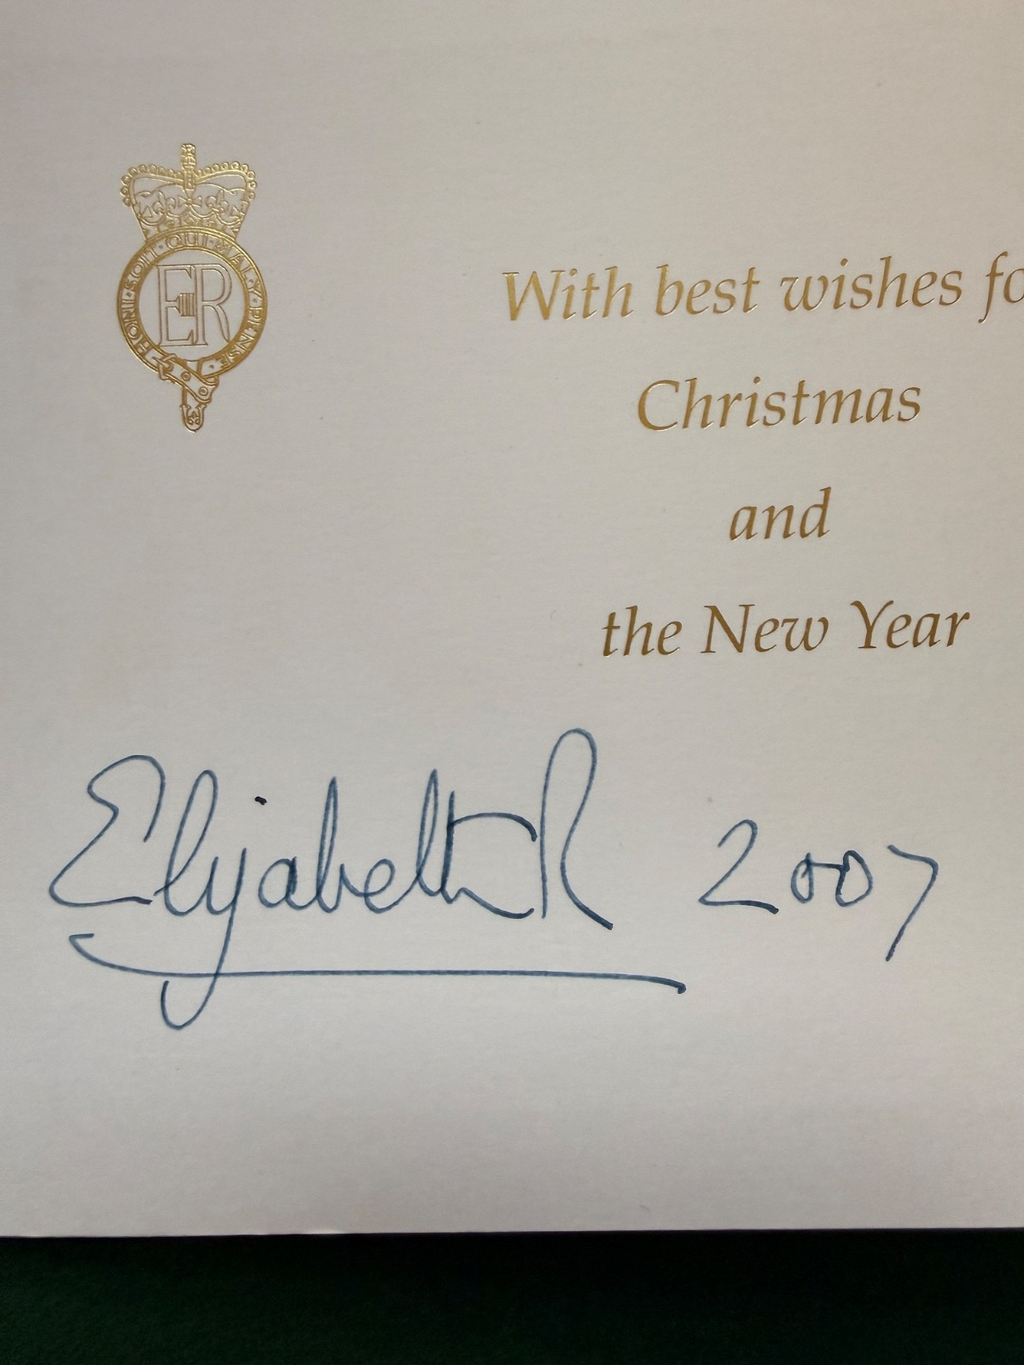 HONI·SOIT·QUI·MAL·Y·PENSE
EIIR
With best wishes fo
Christmas
and
the New Year
Elizabeth R 2007